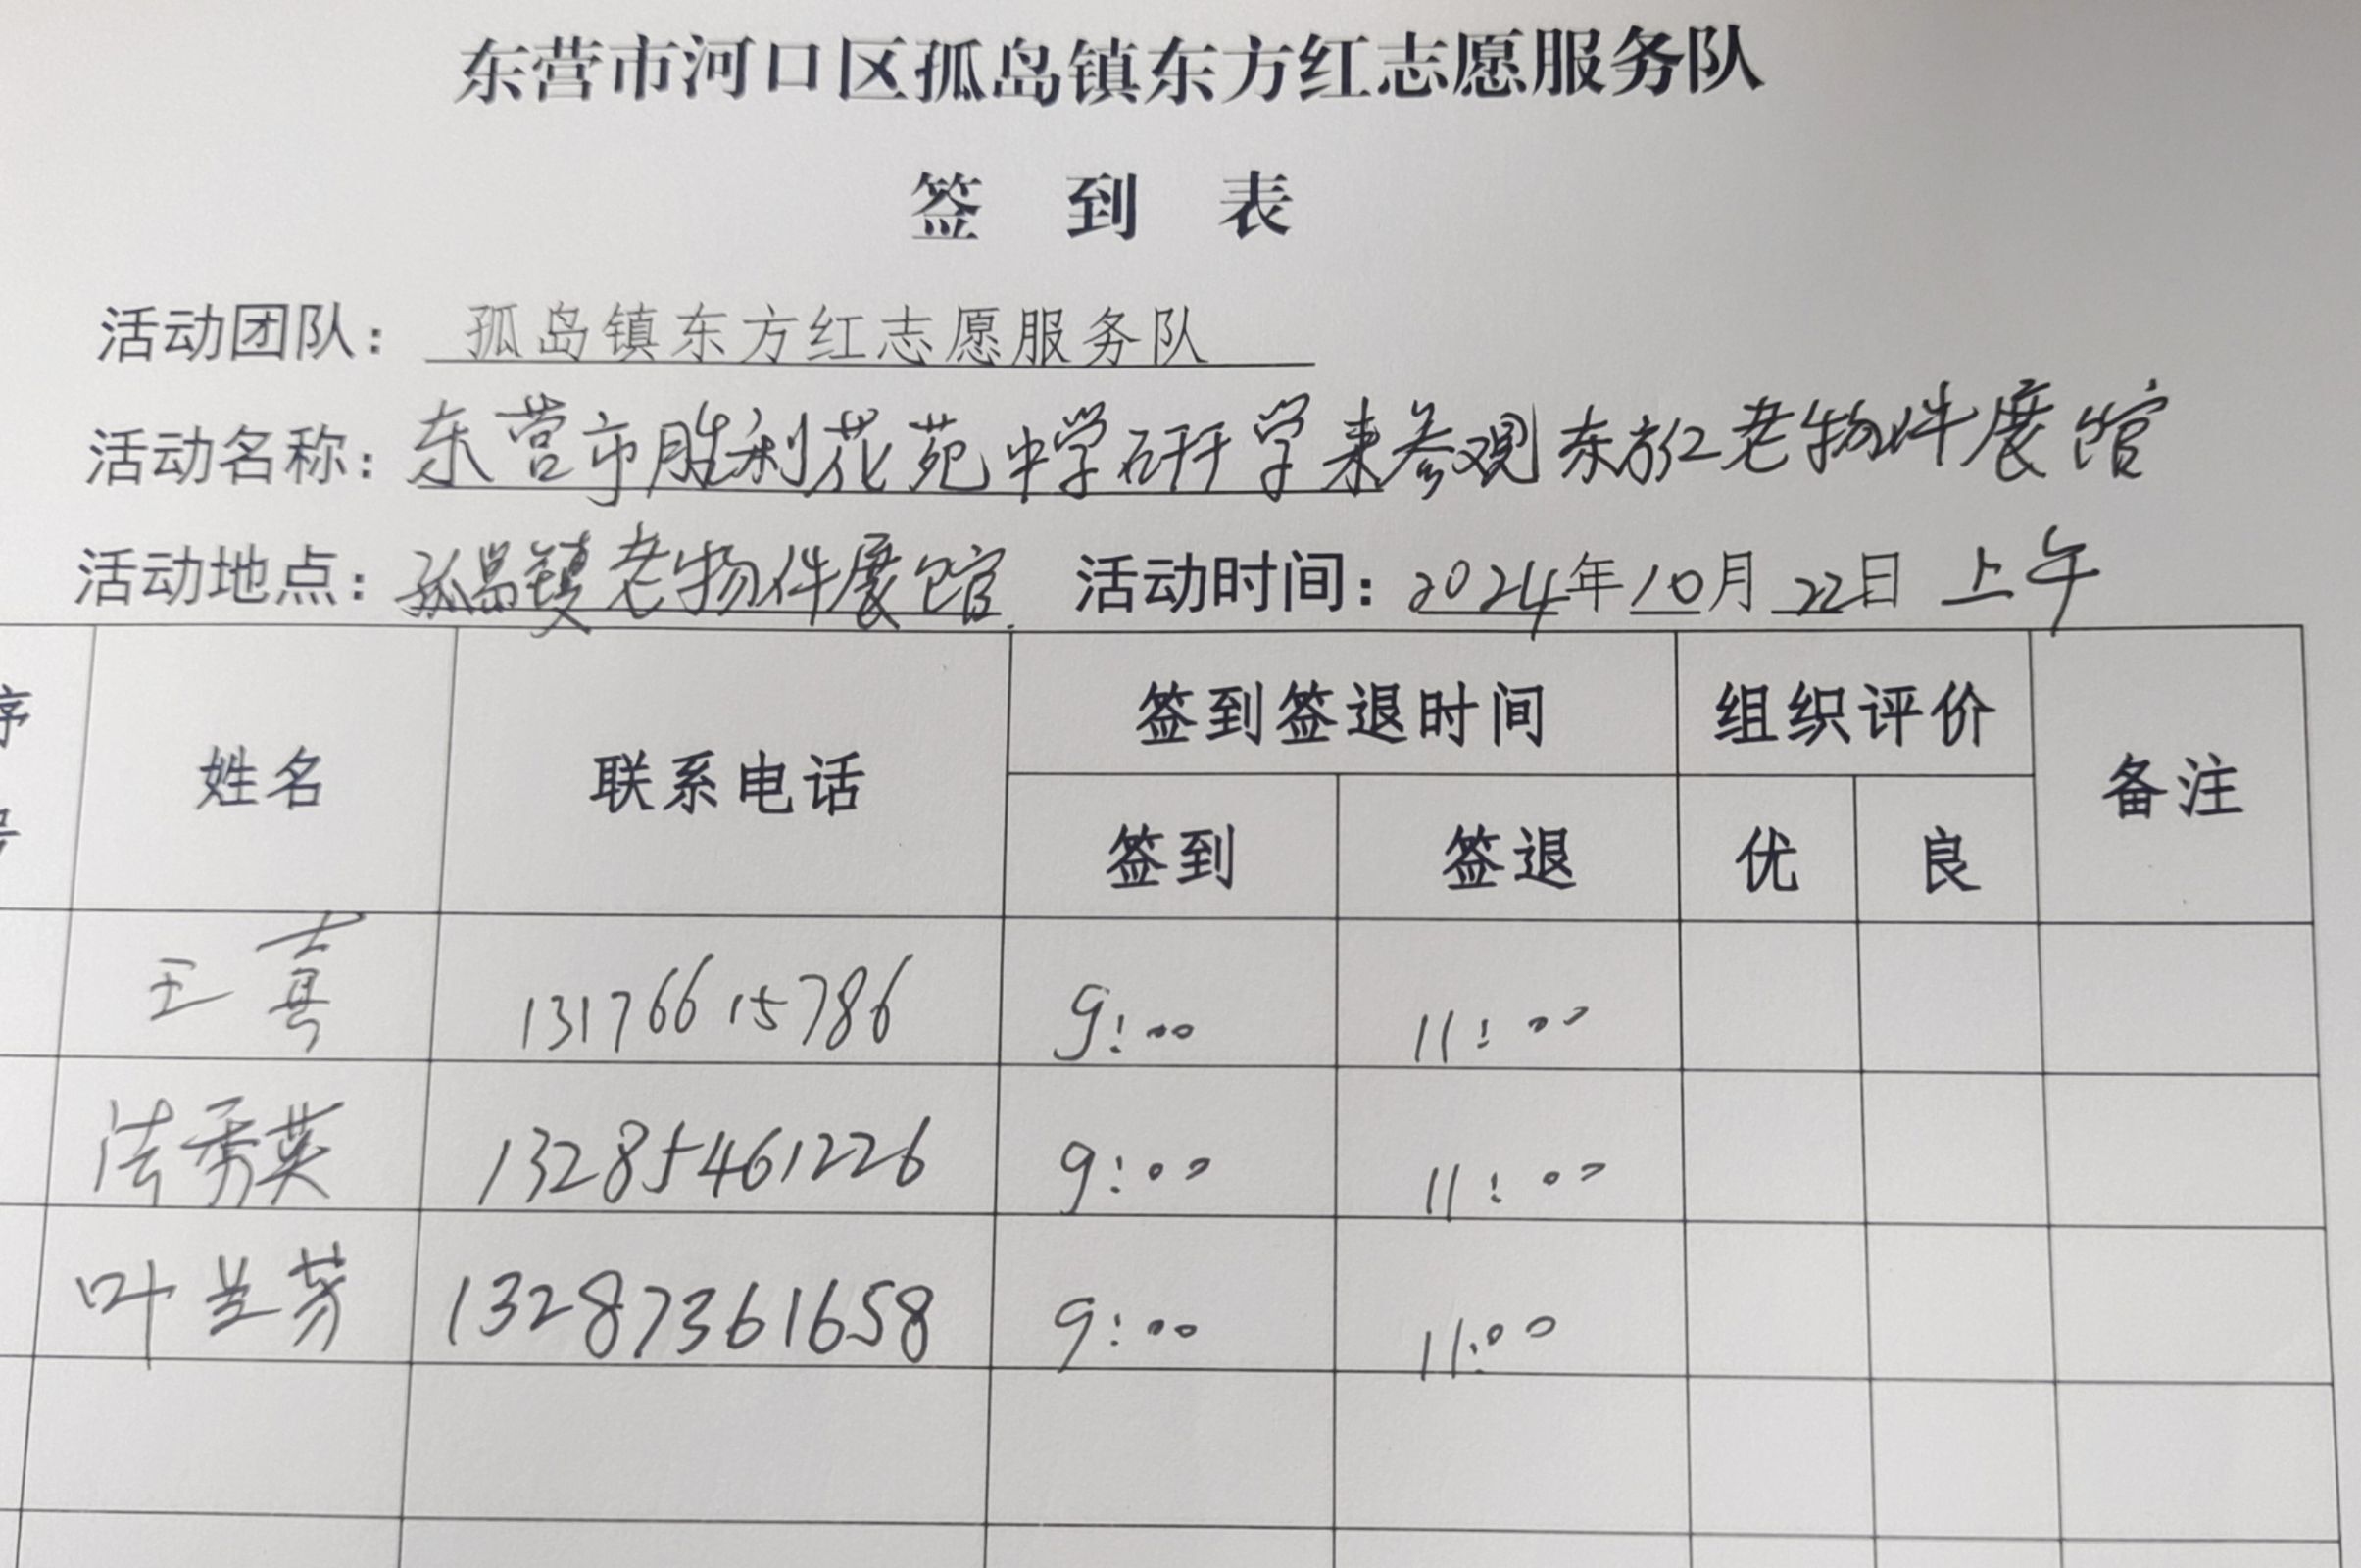 东营市河口区孤岛镇东方红志愿服务队
签到表
活动团队：孤岛镇东方红志愿服务队
活动名称：东营市胜利花苑中学研学来参观东方红老物件展馆
活动地点：孤岛镇老物件展馆 活动时间：2024年10月22日上午
序号 姓名 联系电话 签到签退时间 组织评价 备注
签到 签退 优 良
王 13176615786 9:00 11:00
法秀英 13285461226 9:00 11:00
叶兰芳 13287361658 9:00 11:00